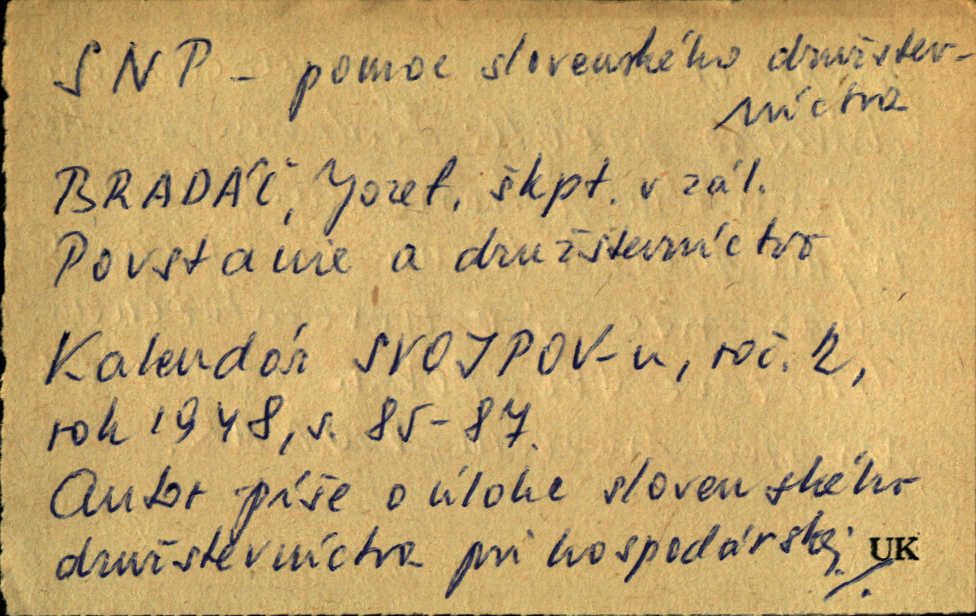 SNP - pomoc slovenského družstev-
níctva
BRADÁČ, Jozef, škpt. v zál.
Povstanie a družstevníctvo
Kalendár SVOJPOV-u, roč. 2,
rok 1948, s. 85-87.
Autor píše o úlohe slovenského
družstevníctva pri hospodárskej
UK